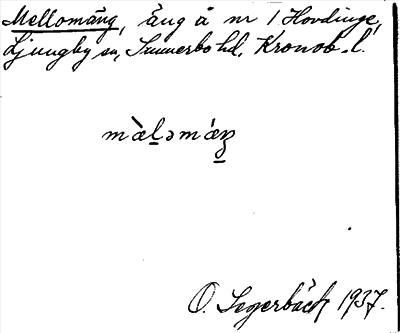 Mellomäng, äng å nr 1 Hovdinge,
Ljungby sn, Sunnerbo hd, Kronob. l.
mὰl̠əmáŋ̠
O. Segerbäck 1937.